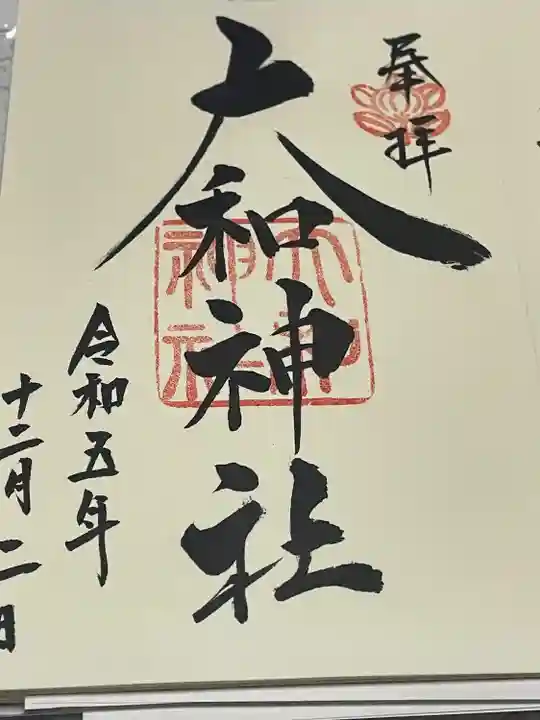 奉拝
大和神社
大和神社
令和五年
十二月二日